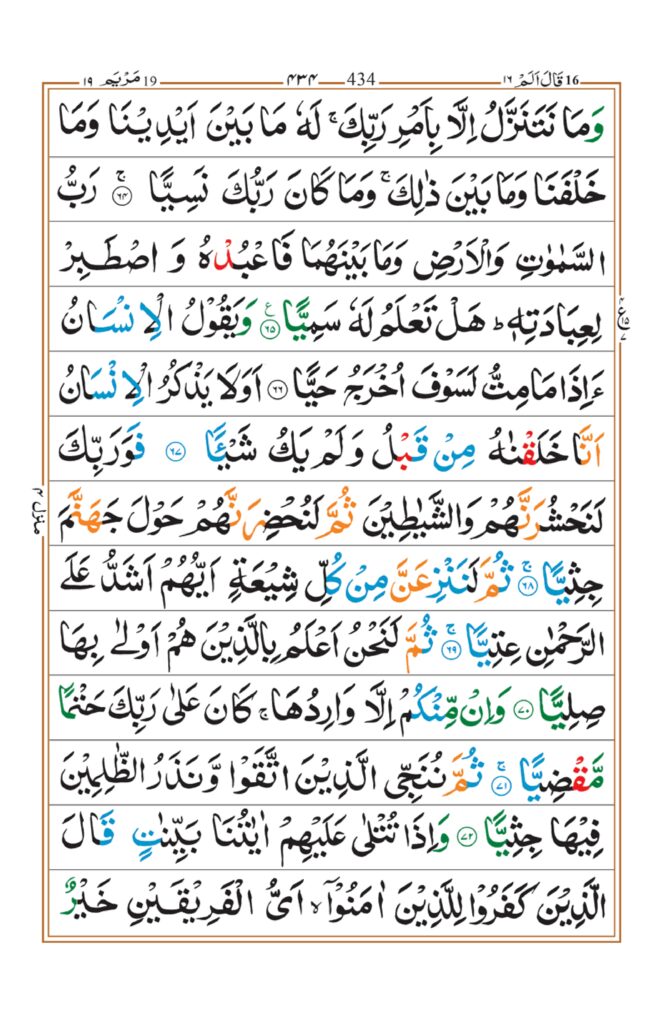 16 قَالَ اَلَمْ ١٦ 434 ۴۳۴ 19 مَرْيَم ١٩
وَمَا نَتَنَزَّلُ اِلَّا بِاَمْرِ رَبِّكَ ۚ لَهٗ مَا بَيْنَ اَيْدِيْنَا وَمَا
خَلْفَنَا وَمَا بَيْنَ ذٰلِكَ ۚ وَمَا كَانَ رَبُّكَ نَسِيًّا ۚ ﴿۶۴﴾ رَبُّ
السَّمٰوٰتِ وَالْاَرْضِ وَمَا بَيْنَهُمَا فَاعْبُدْهُ وَ اصْطَبِرْ
لِعِبَادَتِهٖ ؕ هَلْ تَعْلَمُ لَهٗ سَمِيًّا ﴿۶۵﴾ ع وَيَقُوْلُ الْاِنْسَانُ
ءَاِذَا مَا مِتُّ لَسَوْفَ اُخْرَجُ حَيًّا ﴿۶۶﴾ اَوَلَا يَذْكُرُ الْاِنْسَانُ
اَنَّا خَلَقْنٰهُ مِنْ قَبْلُ وَ لَمْ يَكُ شَيْـًٔا ﴿۶۷﴾ فَوَرَبِّكَ
لَنَحْشُرَنَّهُمْ وَالشَّيٰطِيْنَ ثُمَّ لَنُحْضِرَنَّهُمْ حَوْلَ جَهَنَّمَ
جِثِيًّا ۚ ﴿۶۸﴾ ثُمَّ لَنَنْزِعَنَّ مِنْ كُلِّ شِيْعَةٍ اَيُّهُمْ اَشَدُّ عَلَى
الرَّحْمٰنِ عِتِيًّا ۚ ﴿۶۹﴾ ثُمَّ لَنَحْنُ اَعْلَمُ بِالَّذِيْنَ هُمْ اَوْلٰى بِهَا
صِلِيًّا ﴿۷۰﴾ وَاِنْ مِّنْكُمْ اِلَّا وَارِدُهَا ۚ كَانَ عَلٰى رَبِّكَ حَتْمًا
مَّقْضِيًّا ۚ ﴿۷۱﴾ ثُمَّ نُنَجِّى الَّذِيْنَ اتَّقَوْا وَّنَذَرُ الظّٰلِمِيْنَ
فِيْهَا جِثِيًّا ﴿۷۲﴾ وَاِذَا تُتْلٰى عَلَيْهِمْ اٰيٰتُنَا بَيِّنٰتٍ قَالَ
الَّذِيْنَ كَفَرُوْا لِلَّذِيْنَ اٰمَنُوْۤا ۙ اَىُّ الْفَرِيْقَيْنِ خَيْرٌ
منزل ۴